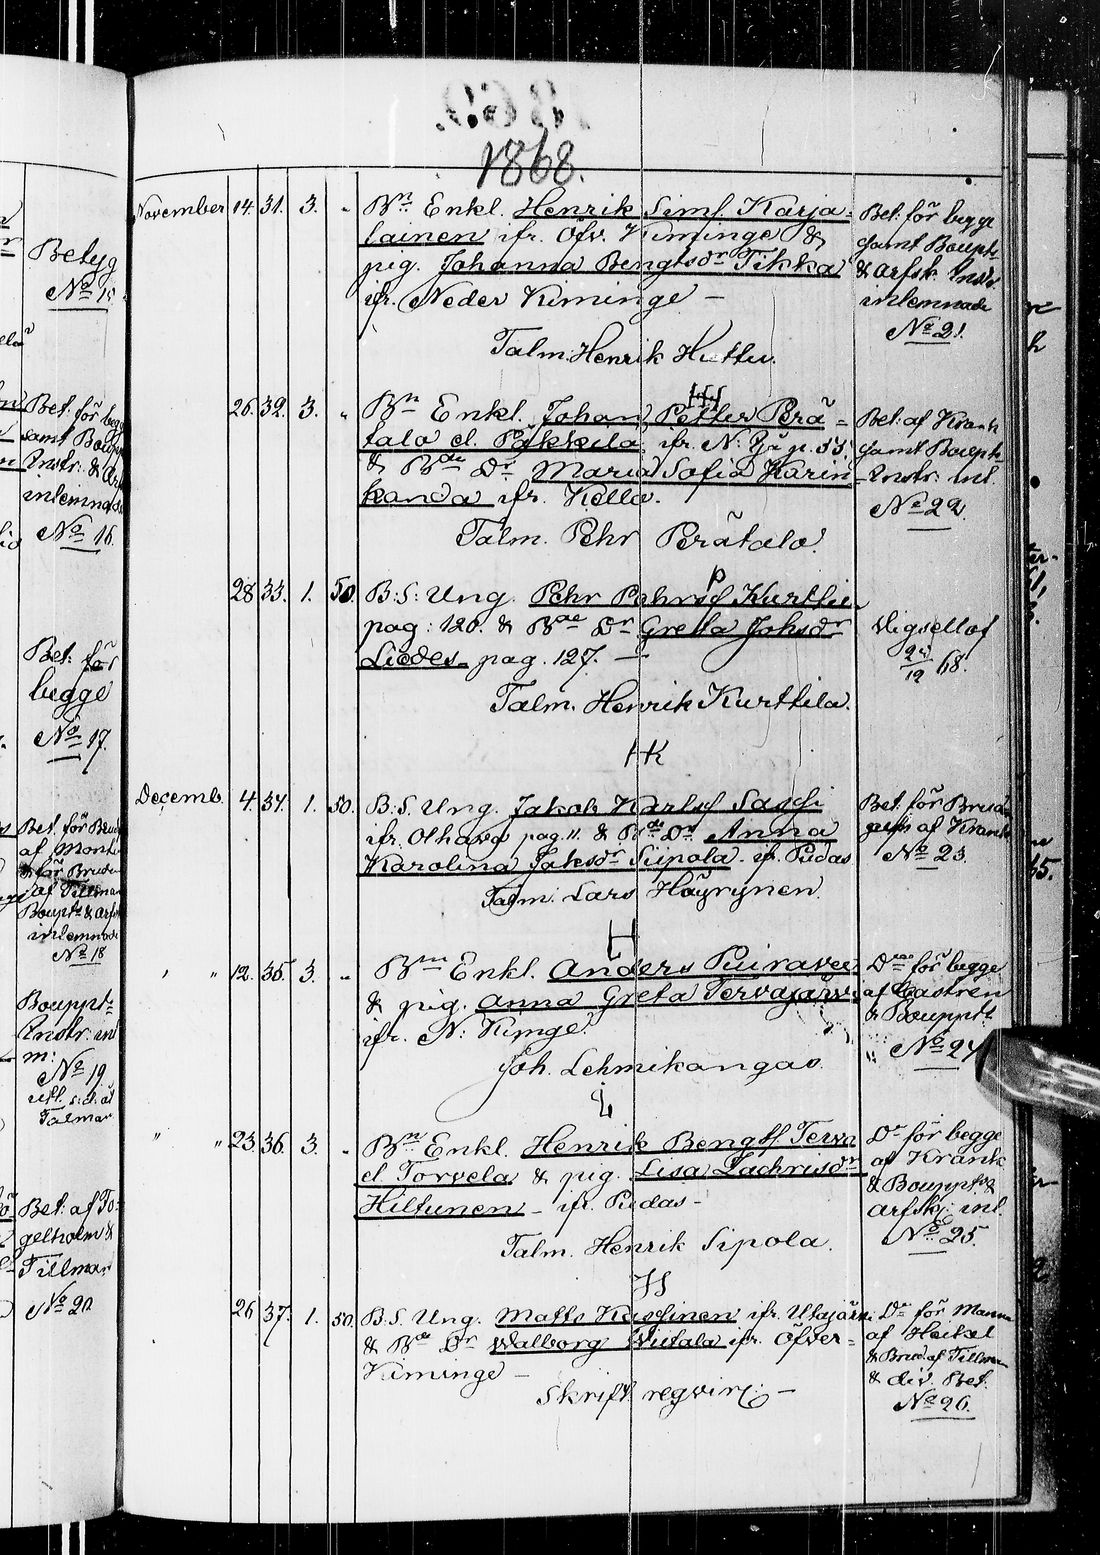 1868.
November 14. 31. 3. „ Bn Enkl. Henrik Simf Karja-
lainen ifr. Öfv. Kiminge &
pig. Johanna Bengtsdr Tikka
ifr. Neder Kiminge —
Talm. Henrik Huttu.
Bet: för begge
samt Boupt:
& arfsk. Instr
inlemnade
No 21.
26. 32. 3. „ Bn Enkl. Johan Petter Perä-
talo el. Pakkila ifr. N:
& Bde Dr Maria Sofia Karin-
kanda ifr. Kello.
Talm. Pehr Perätalo.
Bet: af Krank
samt Boupt:
Instr: inl.
No 22.
28 33. 1. 50. B:S: Ung. Pehr Pehrsf Kurttila
pag: 120. & Bde Dr Greta Johsdr
Liedes pag. 127. —
Talm. Henrik Kurttila.
Vigsell af
68.
HK
Decemb. 4 34. 1. 50. B.S. Ung. Jakob Karlsf Sassi
ifr. Olhava pag. 11. & Bde Dr Anna
Karolina Jaksdr Siipola. ifr. Pudas
Talm. Lars Höyrynen.
Bet: för Brud
gum af Krank
No 23.
H
„ „ 12. 35. 3. „ Bm Enkl. Anders Puiravee
& pig. Anna Greta Tervajärvi
ifr. N: Kimge.
Joh. Lehmikangas
Dne för begge
af Castren
& Bouppt:
No 24
L
„ „ 23. 36. 3. „ Bm Enkl. Henrik Bengtsf Terva
el. Torvela & pig. Lisa Zachrisdr
Hiltunen — ifr. Pudas —
Talm. Henrik Sipola.
Do för begge
af Krank
& Bouppt &
arfskj: inl.
No 25.
HS
26 37. 1. 50. B.S. Ung. Matts Kassinen ifr. Utajärvi
& Bde Dr Walborg Wiitala ifr. Öfver-
Kiminge —
Skrift. reqvir: —
Do för Mann
af Heikel
& Brud. af Tillman
& div. Bet.
No 26.
Betyg
No 15
Bet: för begge
samt Boupt
Instr: & Arf
inlemnade
No 16.
Bet: för
begge
No 17.
Bet: för Brud
af Monte
& för Bruden
af Tillman
Boupt & arfs
inlemnade
No 18
Bouppt:
Instr: inl
m:
No 19
Talman
Bet: af Fo-
gelholm &
Tillman
No 20